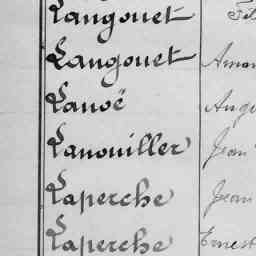 Langouet
Langouet Aman
Lanoë Ange
Lanouiller Jean
Laperche Jean
Laperche Ernest